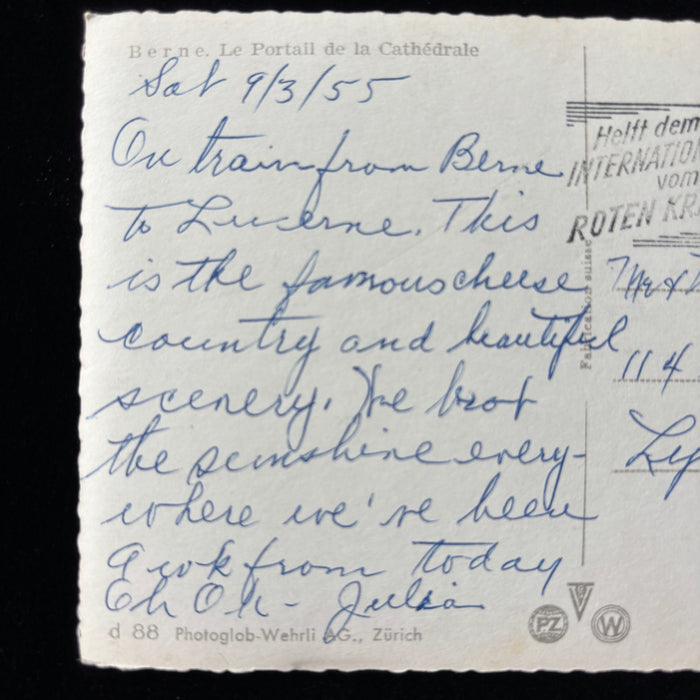 Berne. Le Portail de la Cathédrale
Sat 9/3/55
On train from Berne
to Lucerne. This
is the famous cheese
country and beautiful
scenery. We brot
the sunshine every-
where we've been
A wk from today
Eh Ok - Julia
d 88 Photoglob-Wehrli AG., Zürich
Fabrication suisse
Helft dem
INTERNATIO
vom
ROTEN KR
Mr &
114
Ly
PZ
W